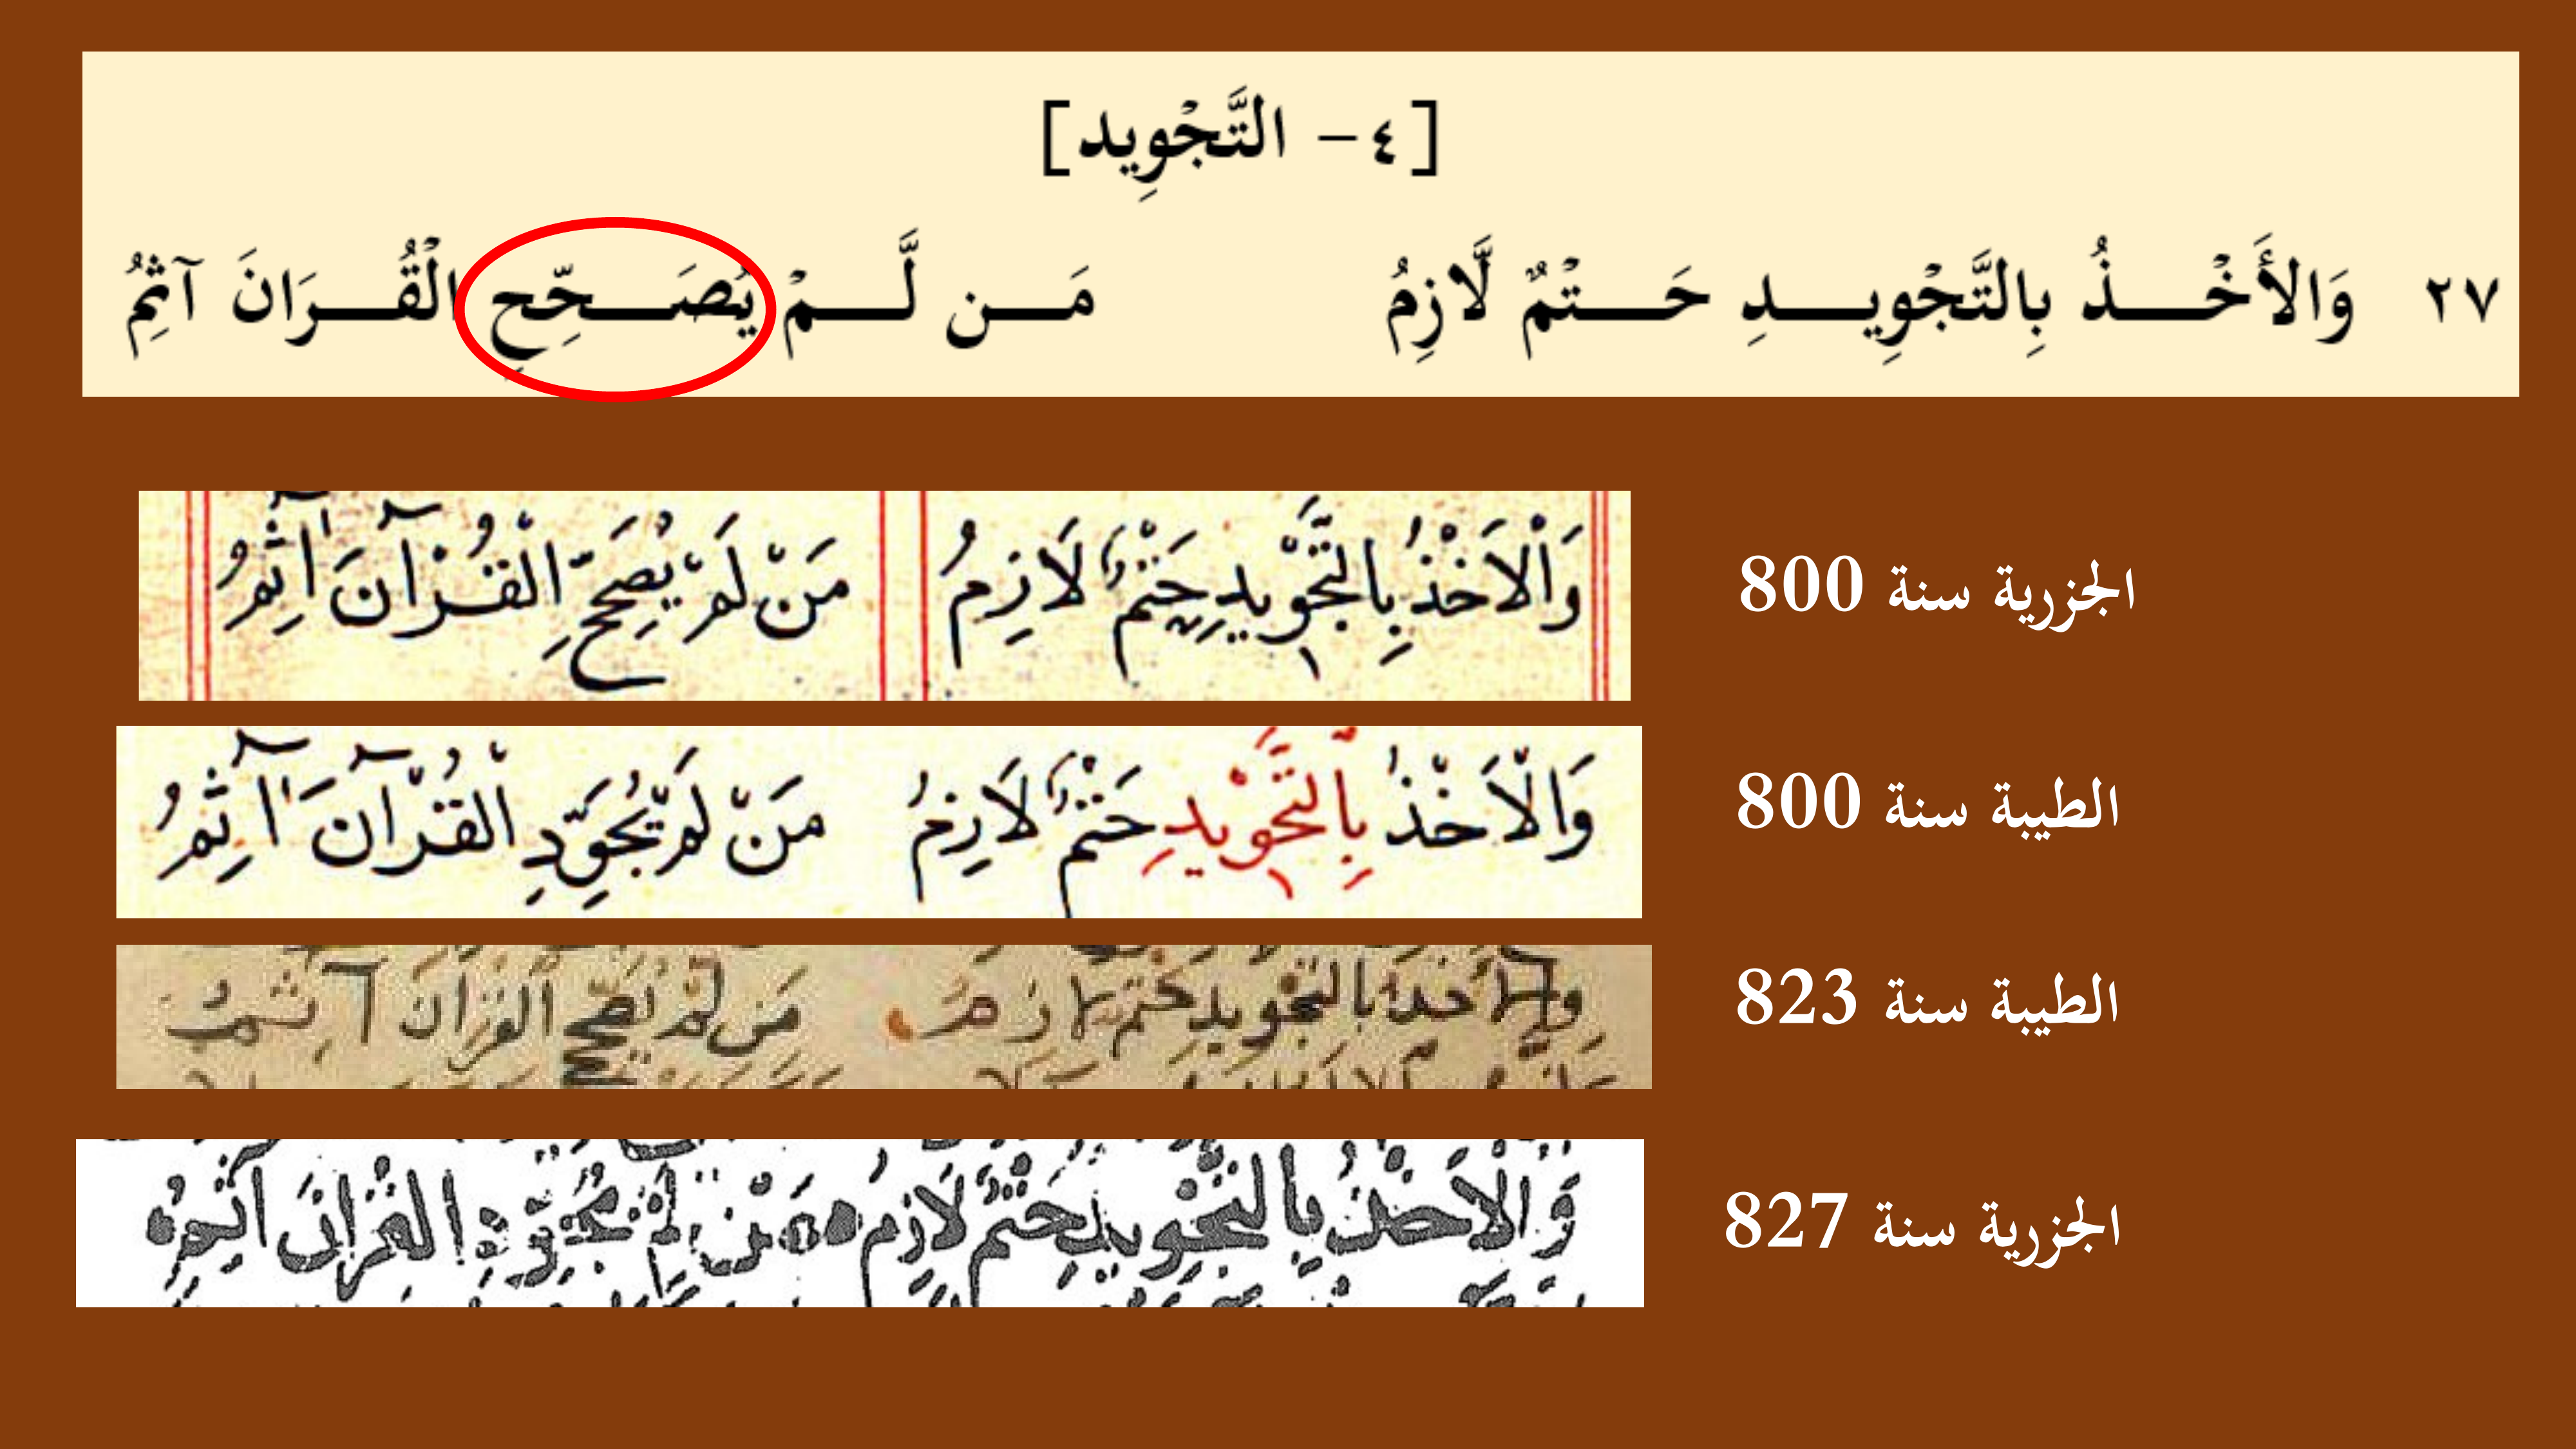 [٤- التَّجْوِيد]
٢٧ وَالأَخْـــذُ بِالتَّجْوِيـــدِ حَـــتْمٌ لَّازِمُ مَـــن لَّـــمْ يُصَـــحِّحِ الْقُـــرَانَ آثِمُ
وَالْاَخْذُ بِالتَّجْوِيدِ حَتْمٌ لَازِمُ مَنْ لَمْ يُصَحِّحِ الْقُرْآنَ آثِمُ
الجزرية سنة 800
وَالْاَخْذُ بِالتَّجْوِيدِ حَتْمٌ لَازِمُ مَنْ لَمْ يُجَوِّدِ الْقُرْآنَ آثِمُ
الطيبة سنة 800
والاخذ بالتجويد حتم لازم مَن لَمْ يُصَحِّحِ القرانَ آثِمُ
الطيبة سنة 823
وَالْاَخْذُ بِالتَّجْوِيدِ حَتْمٌ لَازِمُ مَنْ لَمْ يُجَوِّدِ الْقُرَانَ آثِمُ
الجزرية سنة 827